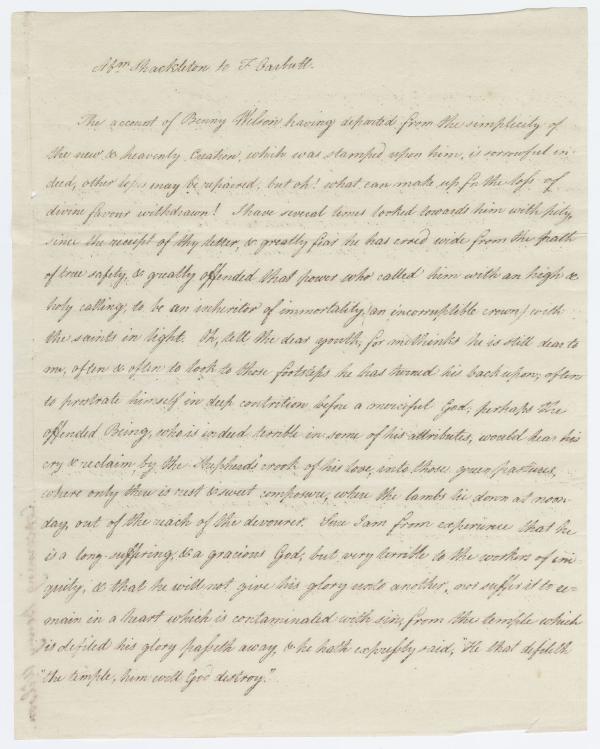 Abm. Shackleton to F. Corbett.
The account of Benny Wilson having departed from the simplicity of
the new & heavenly Creation, which was stamped upon him, is sorrowful in-
deed, other loss may be repaired, but oh! what can make up for the loss of
divine favour withdrawn! I have several times looked towards him with pity,
since the receipt of thy letter, & greatly fear he has erred wide from the path
of true safety, & greatly offended that power who called him with an high &
holy calling, to be an inheritor of immortality (an incorruptible crown) with
the saints in light. Oh, tell the dear youth, for methinks he is still dear to
me, often & often to look to those footsteps he has turned his back upon; often
to prostrate himself in deep contrition before a merciful God; perhaps the
offended Being, who is indeed terrible in some of his attributes, would hear his
cry & reclaim by the Shepherd's crook of his love, into those green pastures,
where only there is rest & sweet composure, where the lambs lie down at noon-
day, out of the reach of the devourer. Sure I am from experience that he
is a long-suffering, & a gracious God, but very terrible to the workers of ini-
quity, & that he will not give his glory unto another, nor suffer it to re-
main in a heart which is contaminated with sin; from the temple which
is defiled his glory passeth away, & he hath expressly said, "He that defileth
"the temple, him will God destroy."